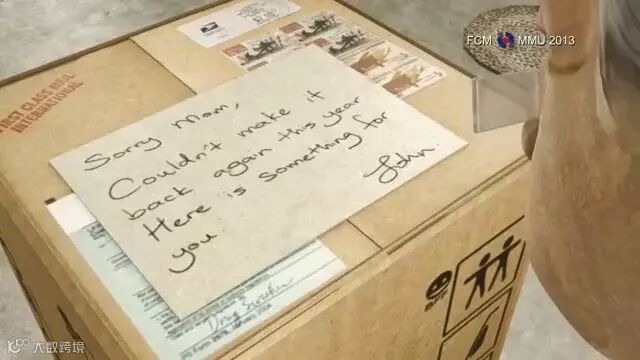 FCM MMU 2013
FIRST CLASS MAIL
INTERNATIONAL
Sorry Mom,
Couldn't make it
back again this year
Here is something for
you
John
大数跨境